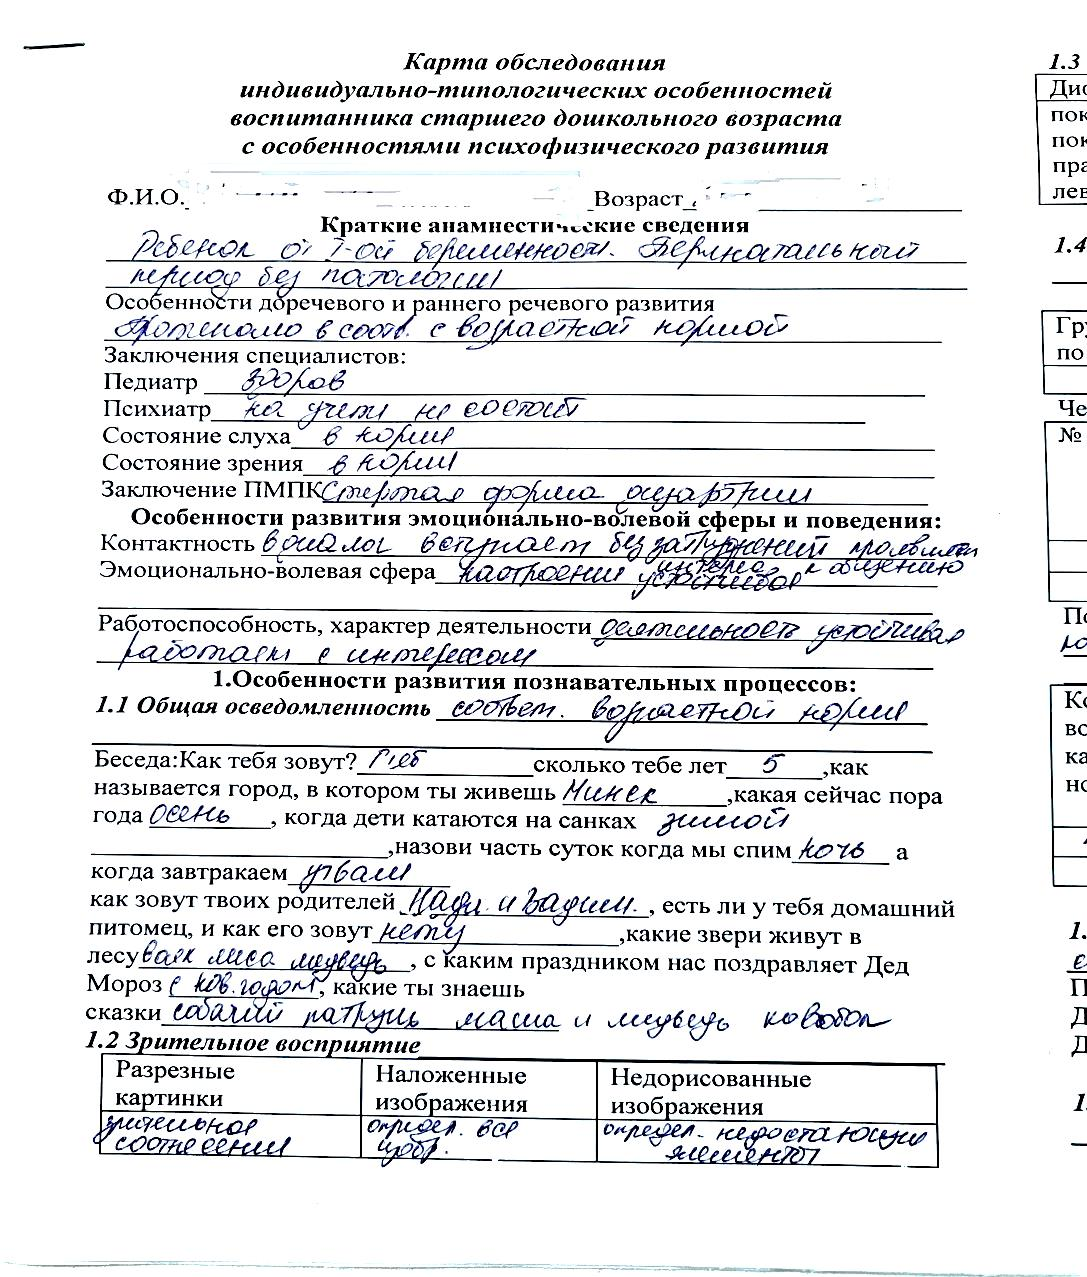 Карта обследования
индивидуально-типологических особенностей
воспитанника старшего дошкольного возраста
с особенностями психофизического развития
Ф.И.О. Возраст
Краткие анамнестические сведения
Ребенок от I-ой беременности. Перинатальный
период без патологии
Особенности доречевого и раннего речевого развития
Протекало в соотв. с возрастной нормой
Заключения специалистов:
Педиатр здоров
Психиатр на учете не состоит
Состояние слуха в норме
Состояние зрения в норме
Заключение ПМПК Стертая форма дизартрии
Особенности развития эмоционально-волевой сферы и поведения:
Контактность в диалог вступает без затруднений проявляет
интерес к общению
Эмоционально-волевая сфера настроение устойчивое
Работоспособность, характер деятельности деятельность устойчивая
работает с интересом
1.Особенности развития познавательных процессов:
1.1 Общая осведомленность соответ. возрастной норме
Беседа:Как тебя зовут? Глеб сколько тебе лет 5 ,как
называется город, в котором ты живешь Минск ,какая сейчас пора
года осень , когда дети катаются на санках зимой
,назови часть суток когда мы спим ночь а
когда завтракаем утвам
как зовут твоих родителей Надя и Вадим. , есть ли у тебя домашний
питомец, и как его зовут нету ,какие звери живут в
лесу волк лиса медведь , с каким праздником нас поздравляет Дед
Мороз с нов.годом , какие ты знаешь
сказки собачий патруль маша и медведь колобок
1.2 Зрительное восприятие
Разрезные картинки
Наложенные изображения
Недорисованные изображения
зрительное соотнесение
определ. все изобр.
определ. недостающие элементы
1.3
Дис
пок
пок
пра
лев
1.4
Гру
по
Че
№
По
Ко
во
ка
но
1.
П
Д
Д
1.